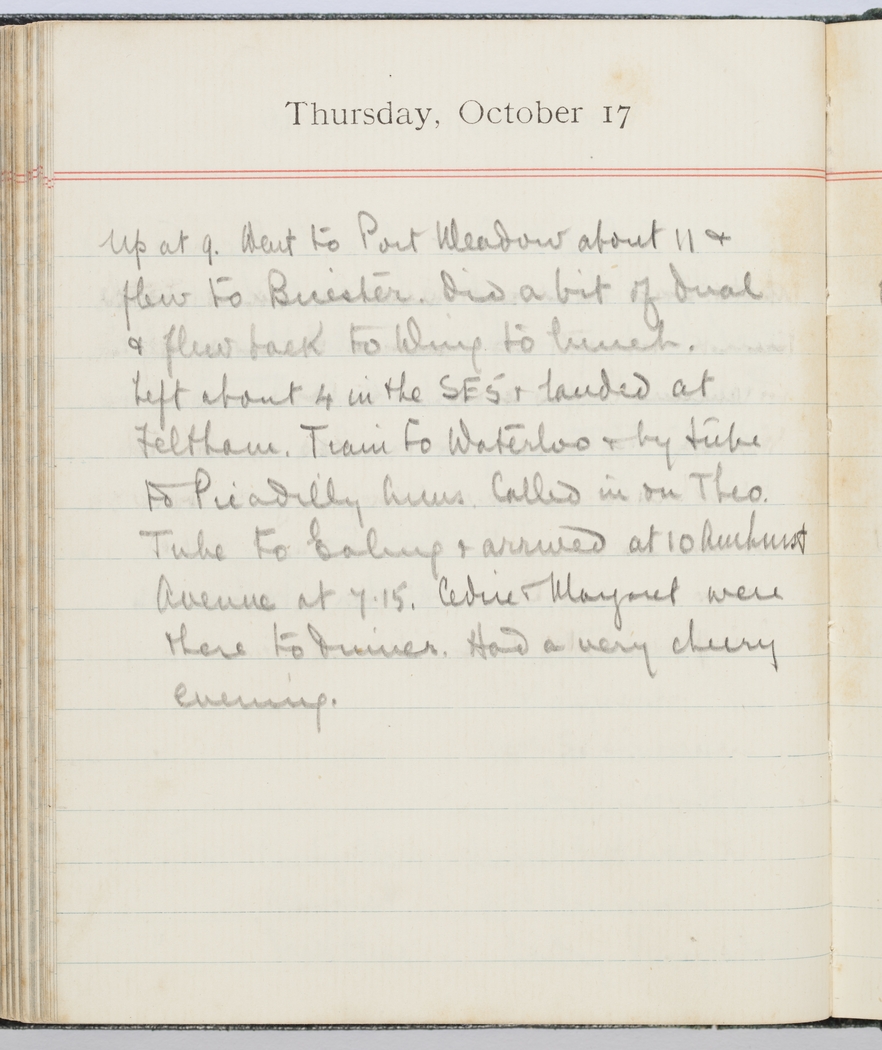 Thursday, October 17
Up at 9. Went to Port Meadow about 11 &
flew to Bicester. Did a bit of dual
& flew back to Wing to lunch.
Left about 4 in the SE5 & landed at
Feltham. Train to Waterloo & by tube
to Picadilly Circus. Called in on Theo.
Tube to Ealing & arrived at 10 Amhurst
Avenue at 7.15. Cedric & Margaret were
there to dinner. Had a very cheery
evening.